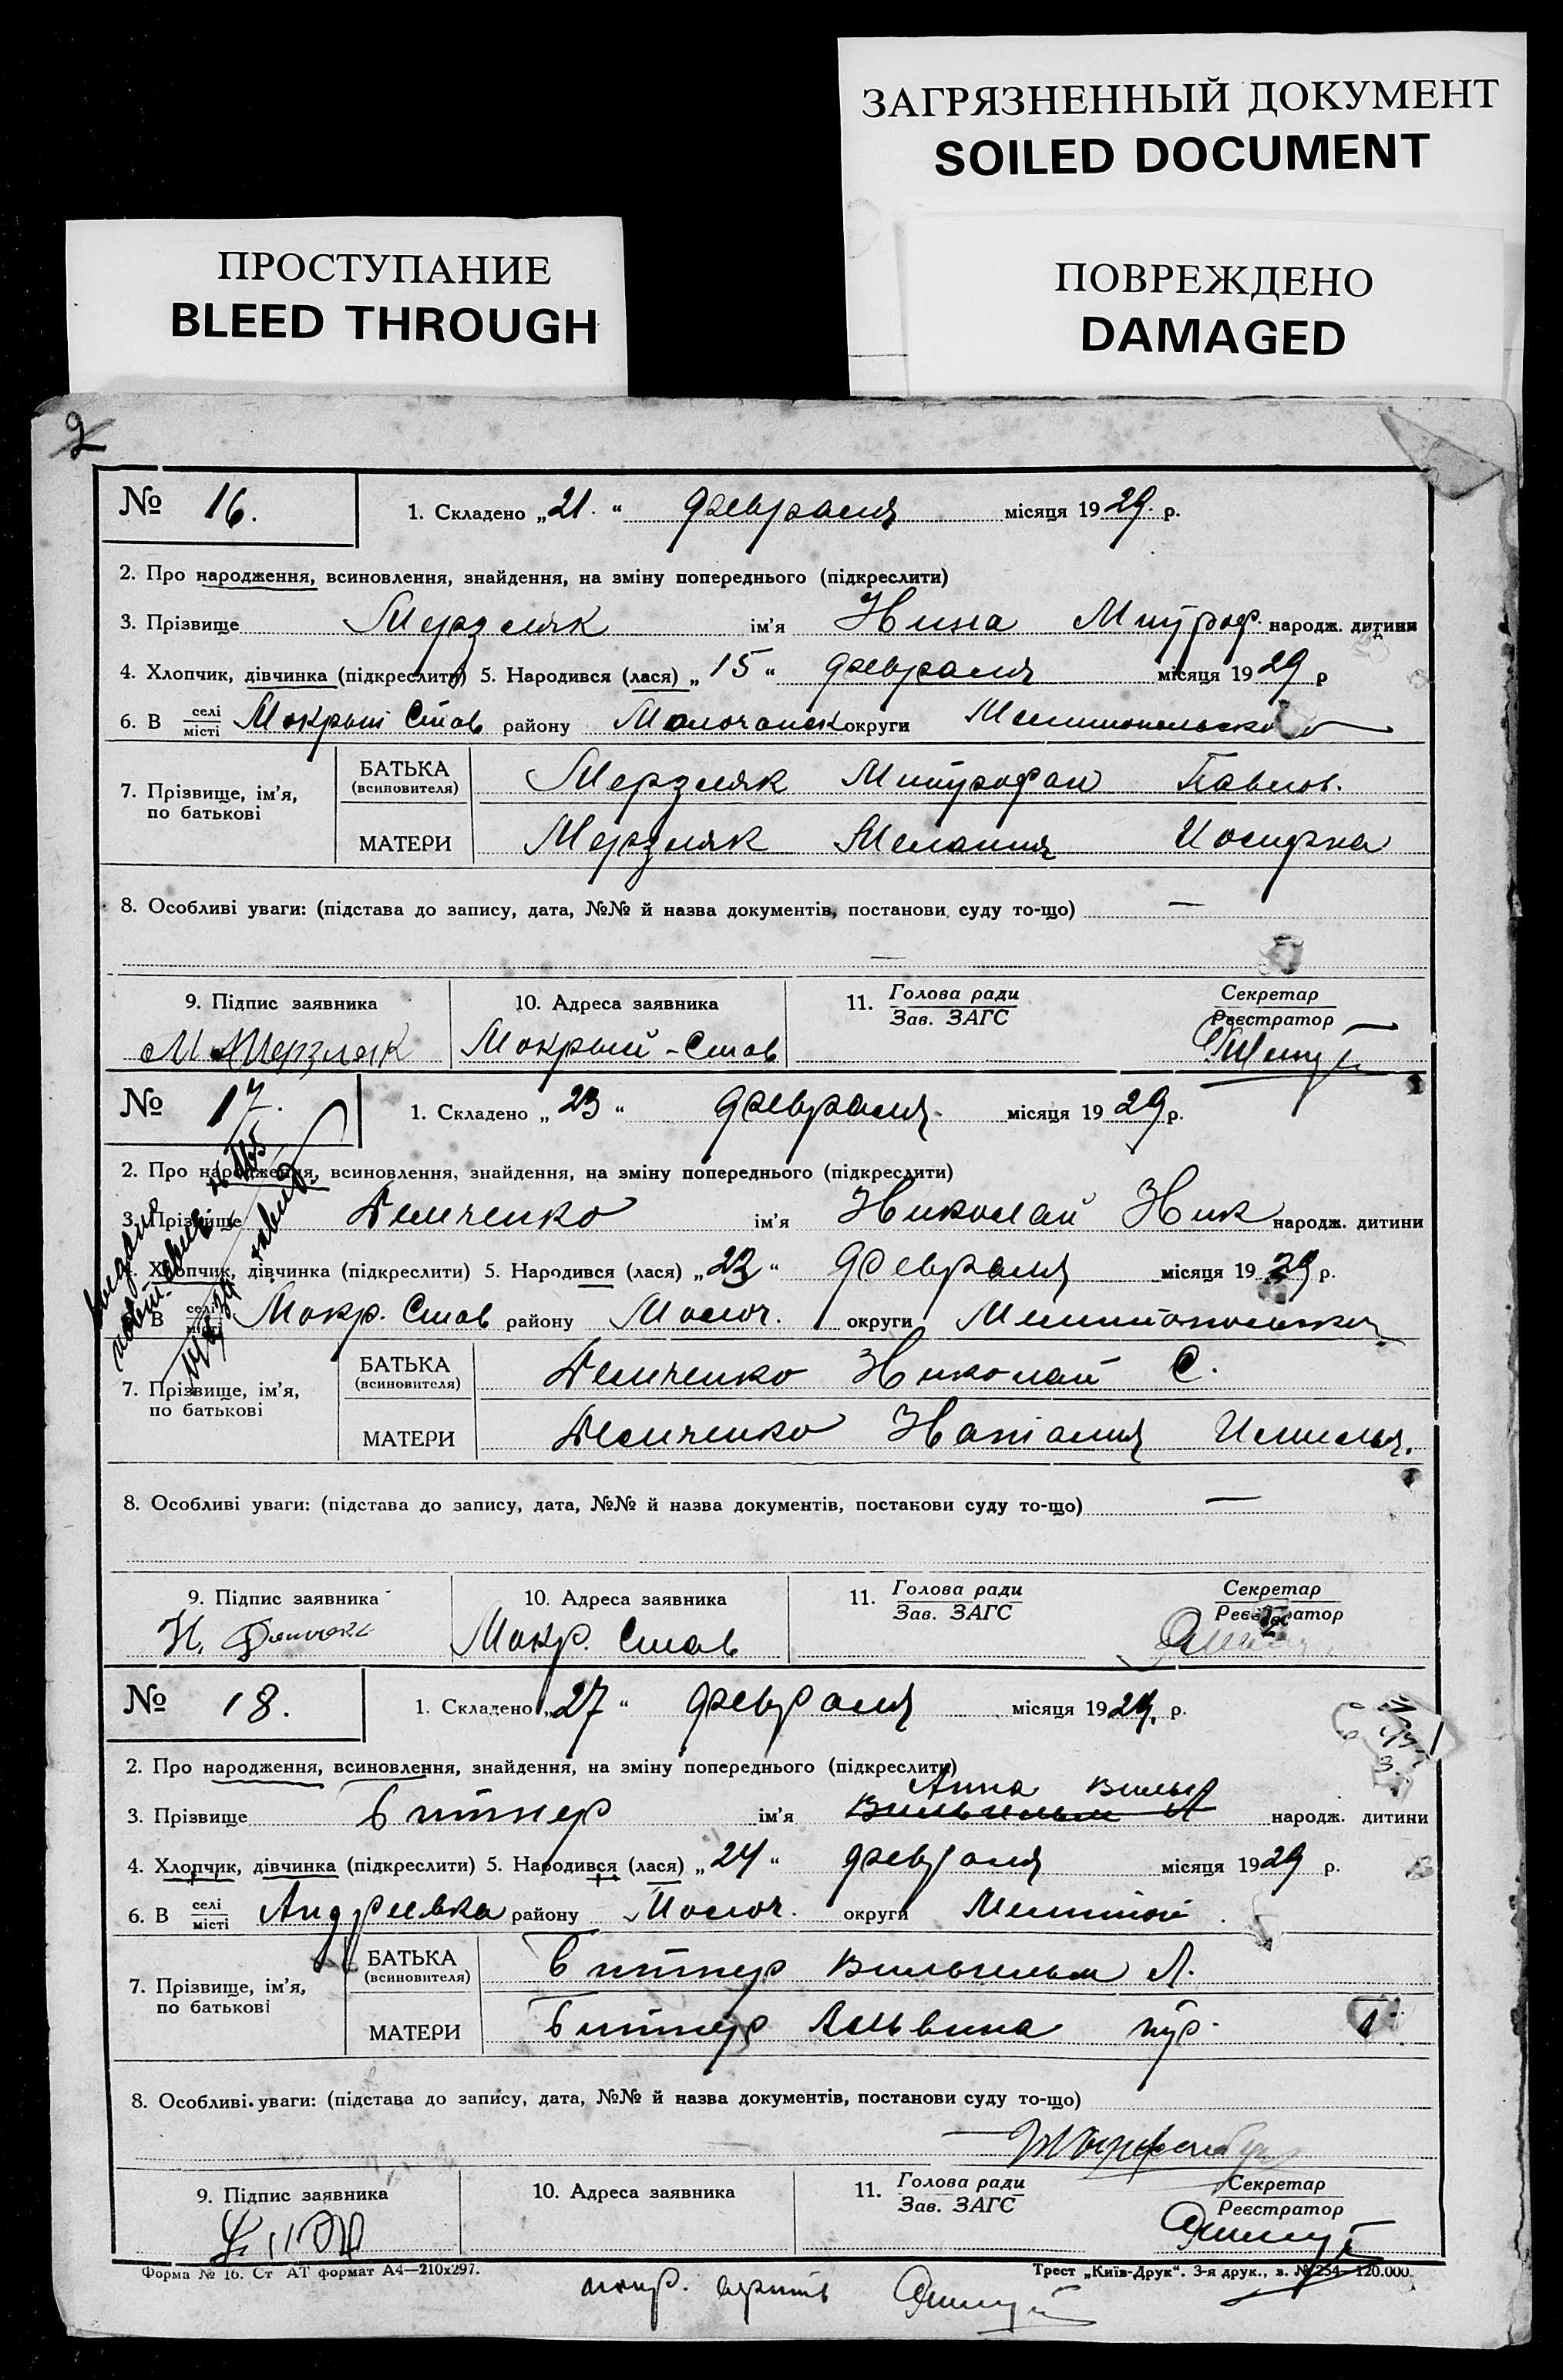 ЗАГРЯЗНЕННЫЙ ДОКУМЕНТ
SOILED DOCUMENT
ПРОСТУПАНИЕ
BLEED THROUGH
ПОВРЕЖДЕНО
DAMAGED
2
№ 16. 1. Складено „21.“ февраля місяця 1929. р.
2. Про народження, всиновлення, знайдення, на зміну попереднього (підкреслити)
3. Прізвище Мерзляк ім'я Нина Митроф. народж. дитини
4. Хлопчик, дівчинка (підкреслити) 5. Народився (лася) „15“ февраля місяця 1929 р
6. В селі місті Мокрый Став району Молочанск округи
7. Прізвище, ім'я, по батькові
БАТЬКА (всиновителя) Мерзляк Митрофан Павлов.
МАТЕРИ Мерзляк Мелания
8. Особливі уваги: (підстава до запису, дата, №№ й назва документів, постанови суду то-що) —
—
9. Підпис заявника 10. Адреса заявника 11. Голова ради Зав. ЗАГС Секретар Реєстратор
М Мерзляк Мокрый-Став
№ 17. 1. Складено „23“ февраля місяця 1929 р.
2. Про народження, всиновлення, знайдення, на зміну попереднього (підкреслити)
3. Прізвище Демченко ім'я Николай Ник народж. дитини
4. Хлопчик, дівчинка (підкреслити) 5. Народився (лася) „23“ февраля місяця 1929 р.
В селі місті Мокр. Став району Молоч. округи
7. Прізвище, ім'я, по батькові
БАТЬКА (всиновителя) Демченко Николай С.
МАТЕРИ Демченко Наталия
8. Особливі уваги: (підстава до запису, дата, №№ й назва документів, постанови суду то-що) —
9. Підпис заявника 10. Адреса заявника 11. Голова ради Зав. ЗАГС Секретар Реєстратор
Н. Мокр. Став
№ 18. 1. Складено „27“ февраля місяця 1929. р.
2. Про народження, всиновлення, знайдення, на зміну попереднього (підкреслити)
Анна Вильг
3. Прізвище Битнер ім'я Вильгельм народж. дитини
4. Хлопчик, дівчинка (підкреслити) 5. Народився (лася) „24“ февраля місяця 1929 р.
6. В селі місті Андреевка району Молоч. округи Мелитоп
7. Прізвище, ім'я, по батькові
БАТЬКА (всиновителя) Битнер Вильгельм Л.
МАТЕРИ Битнер Альвина
8. Особливі уваги: (підстава до запису, дата, №№ й назва документів, постанови суду то-що)
9. Підпис заявника 10. Адреса заявника 11. Голова ради Зав. ЗАГС Секретар Реєстратор
Форма № 16. Ст АТ формат А4—210x297. Трест „Київ-Друк“. 3-я друк., з. № 254—120.000.